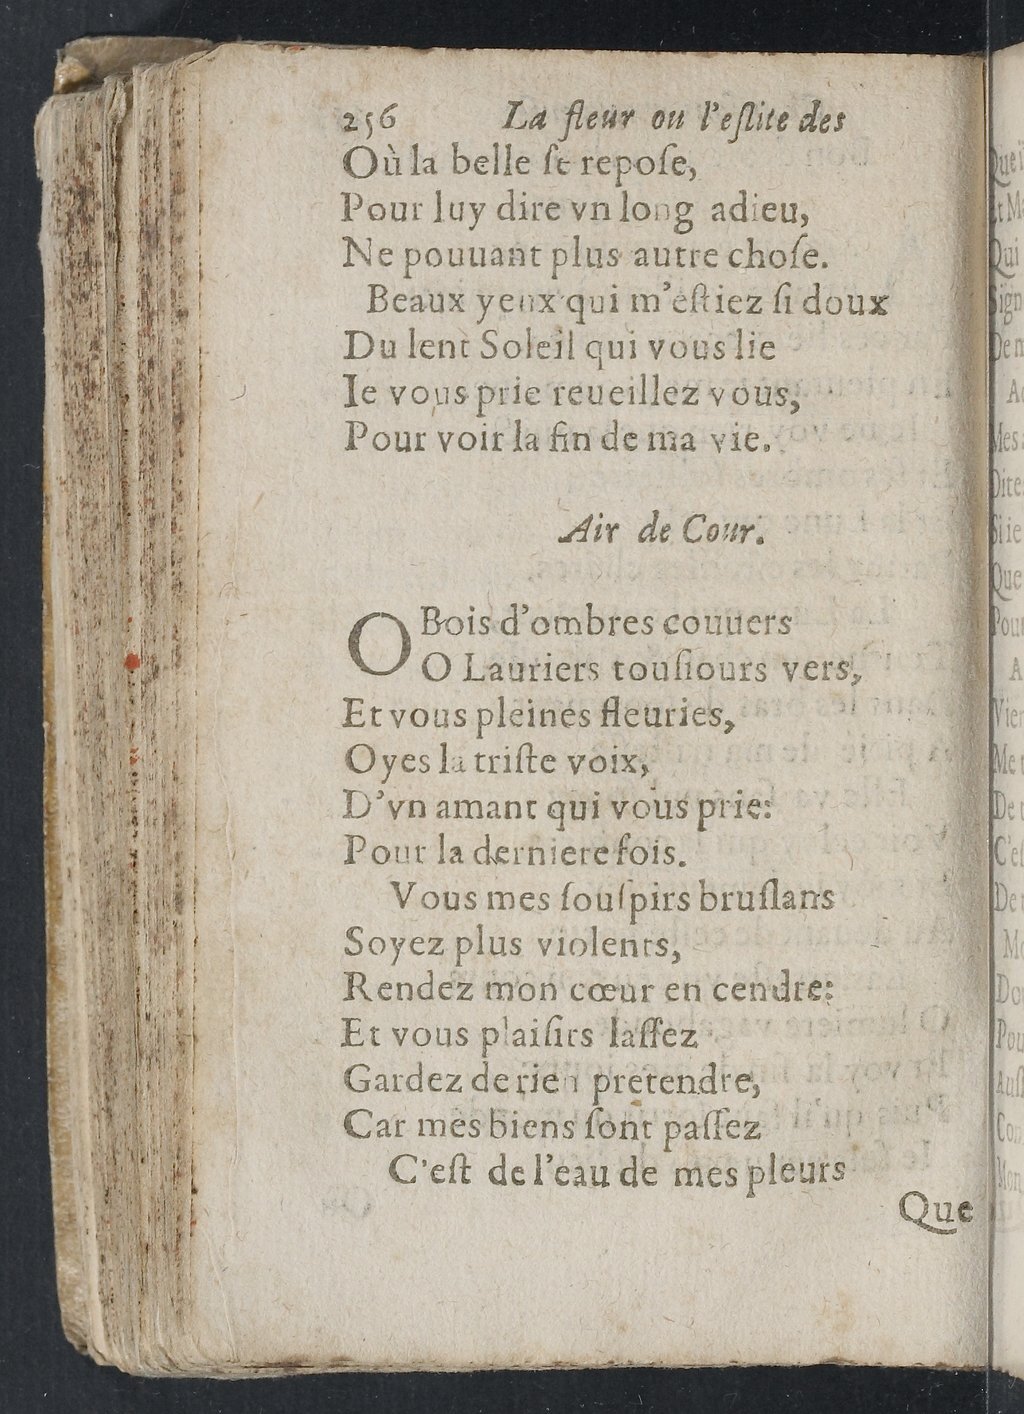 256 La fleur ou l'eſlite des
Où la belle ſe repoſe,
Pour luy dire vn long adieu,
Ne pouuant plus autre choſe.
Beaux yeux qui m'eſtiez ſi doux
Du lent Soleil qui vous lie
Ie vous prie reueillez vous,
Pour voir la fin de ma vie.
Air de Cour.
O Bois d'ombres couuers
O Lauriers touſiours vers,
Et vous pleines fleuries,
Oyes la triſte voix,
D'vn amant qui vous prie:
Pour la derniere fois.
Vous mes ſouſpirs bruſlans
Soyez plus violents,
Rendez mon cœur en cendre:
Et vous plaiſirs laſſez
Gardez de rien pretendre,
Car mes biens ſont paſſez
C'eſt de l'eau de mes pleurs
Que